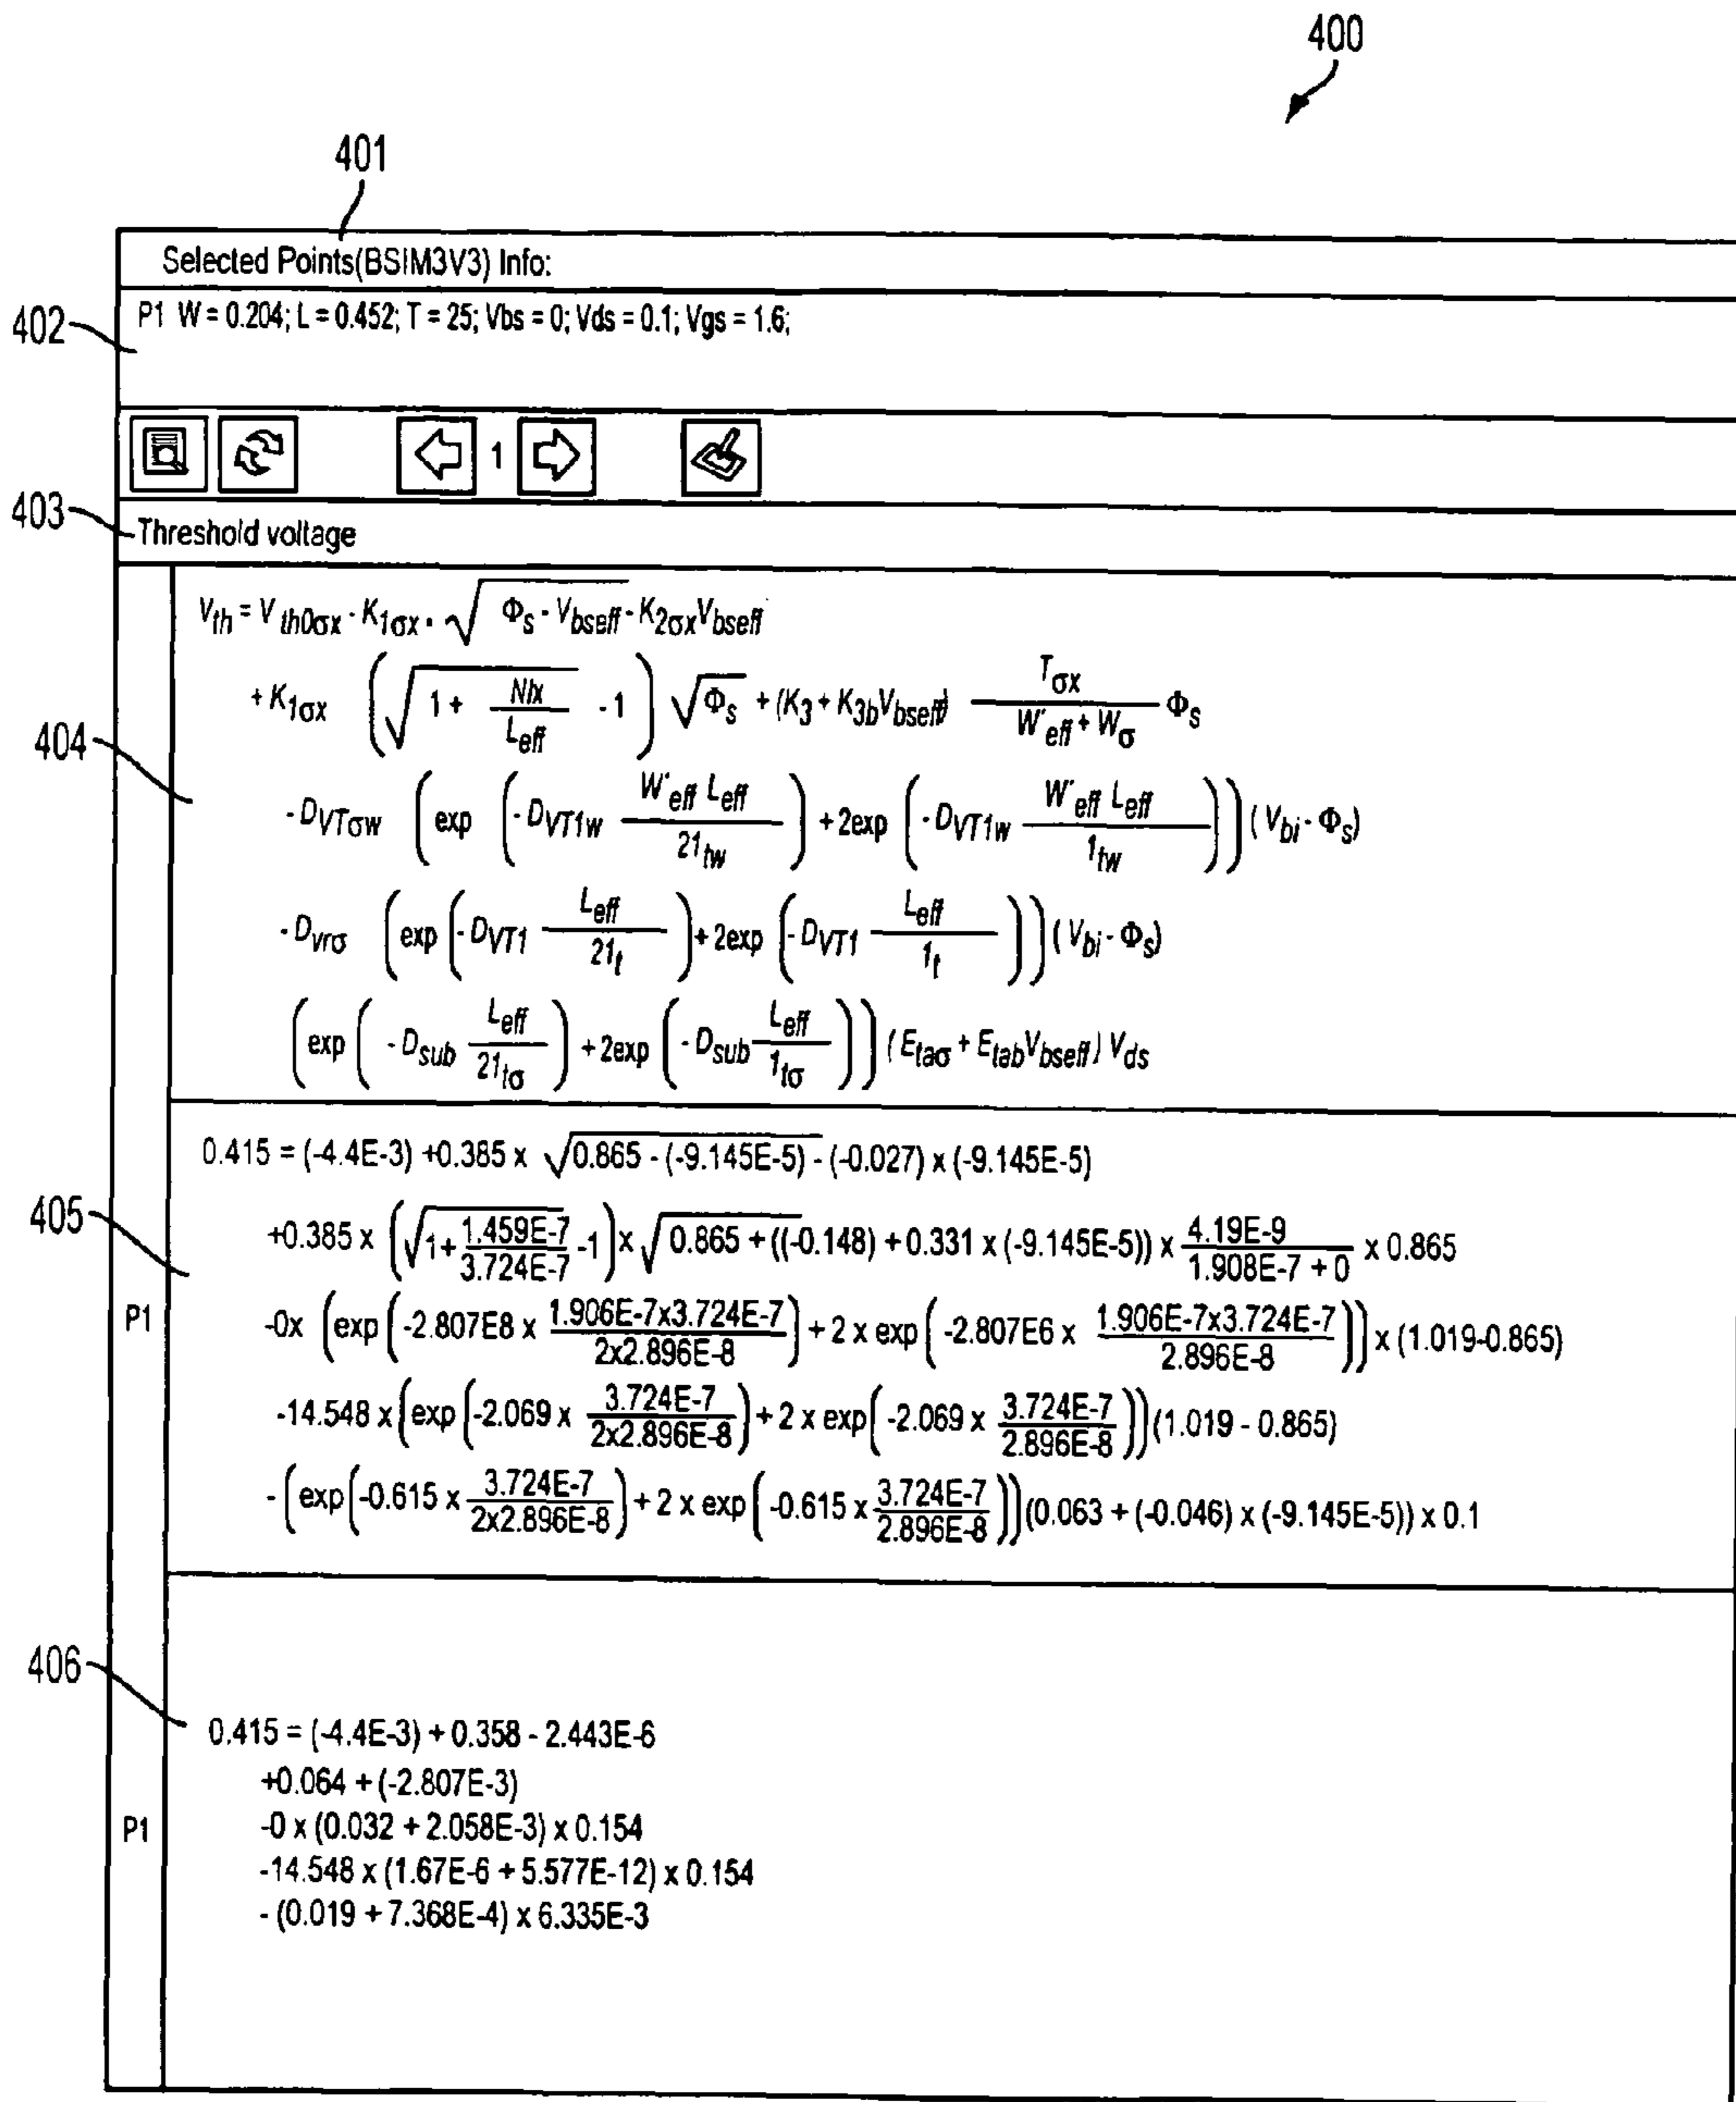 400
401
Selected Points(BSIM3V3) Info:
402
P1 W = 0.204; L = 0.452; T = 25; Vbs = 0; Vds = 0.1; Vgs = 1.6;
1
403
Threshold voltage
404
V_th = V_th0σx - K_1σx · √(Φ_s - V_bseff) - K_2σx V_bseff
+ K_1σx (√(1 + Nlx / L_eff) - 1) √Φ_s + (K_3 + K_3b V_bseff) T_σx / (W'_eff + W_σ) Φ_s
- D_VTσw (exp (- D_VT1w W'_eff L_eff / 21_tw) + 2exp (- D_VT1w W'_eff L_eff / 1_tw)) (V_bi - Φ_s)
- D_vrσ (exp (- D_VT1 L_eff / 21_t) + 2exp (- D_VT1 L_eff / 1_t)) (V_bi - Φ_s)
(exp (- D_sub L_eff / 21_tσ) + 2exp (- D_sub L_eff / 1_tσ)) (E_taσ + E_tab V_bseff) V_ds
405
P1
0.415 = (-4.4E-3) +0.385 x √(0.865 - (-9.145E-5)) - (-0.027) x (-9.145E-5)
+0.385 x (√(1+ 1.459E-7 / 3.724E-7) -1) x √0.865 + ((-0.148) + 0.331 x (-9.145E-5)) x 4.19E-9 / (1.908E-7 + 0) x 0.865
-0x (exp (-2.807E8 x 1.906E-7x3.724E-7 / 2x2.896E-8) + 2 x exp (-2.807E6 x 1.906E-7x3.724E-7 / 2.896E-8)) x (1.019-0.865)
-14.548 x (exp (-2.069 x 3.724E-7 / 2x2.896E-8) + 2 x exp (-2.069 x 3.724E-7 / 2.896E-8)) (1.019 - 0.865)
- (exp (-0.615 x 3.724E-7 / 2x2.896E-8) + 2 x exp (-0.615 x 3.724E-7 / 2.896E-8)) (0.063 + (-0.046) x (-9.145E-5)) x 0.1
406
P1
0.415 = (-4.4E-3) + 0.358 - 2.443E-6
+0.064 + (-2.807E-3)
-0 x (0.032 + 2.058E-3) x 0.154
-14.548 x (1.67E-6 + 5.577E-12) x 0.154
- (0.019 + 7.368E-4) x 6.335E-3